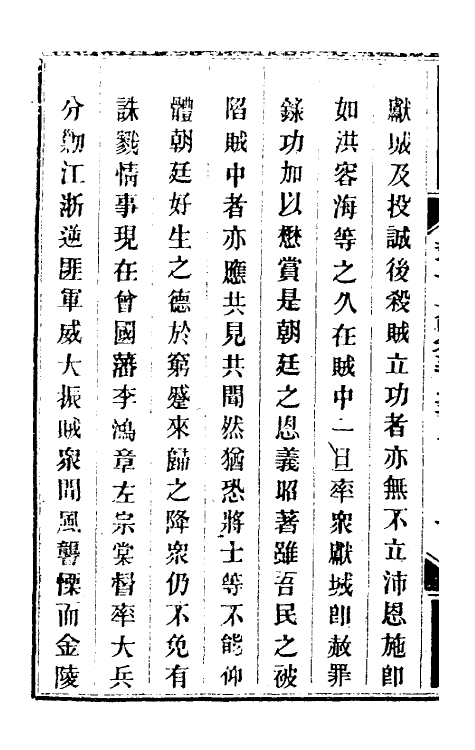 獻城及投誠後殺賊立功者亦無不立沛恩施卽
如洪容海等之久在賊中一旦率衆獻城卽赦罪
錄功加以懋賞是朝廷之恩義昭著雖吾民之被
陷賊中者亦應共見共聞然猶恐將士等不能仰
體朝廷好生之德於窮蹙來歸之降衆仍不免有
誅戮情事現在曾國藩李鴻章左宗棠督率大兵
分勦江浙逆匪軍威大振賊衆聞風讋慄而金陵